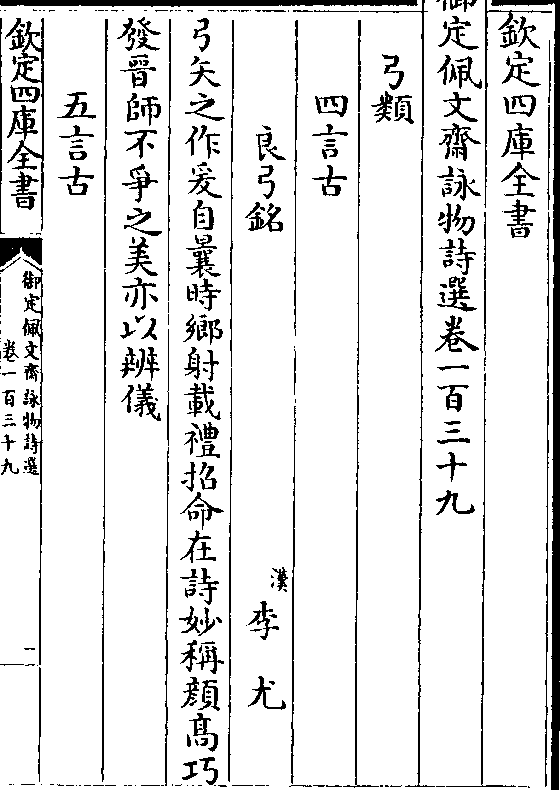 欽定四庫全書
御定佩文齋詠物詩選卷一百三十九
弓類
四言古
良弓銘
漢李尤
弓矢之作爰自曩時鄉射載禮招命在詩妙稱顔髙巧
發晉師不爭之美亦以辨儀
五言古
欽定四庫全書
御定佩文齋詠物詩選
卷一百三十九
一